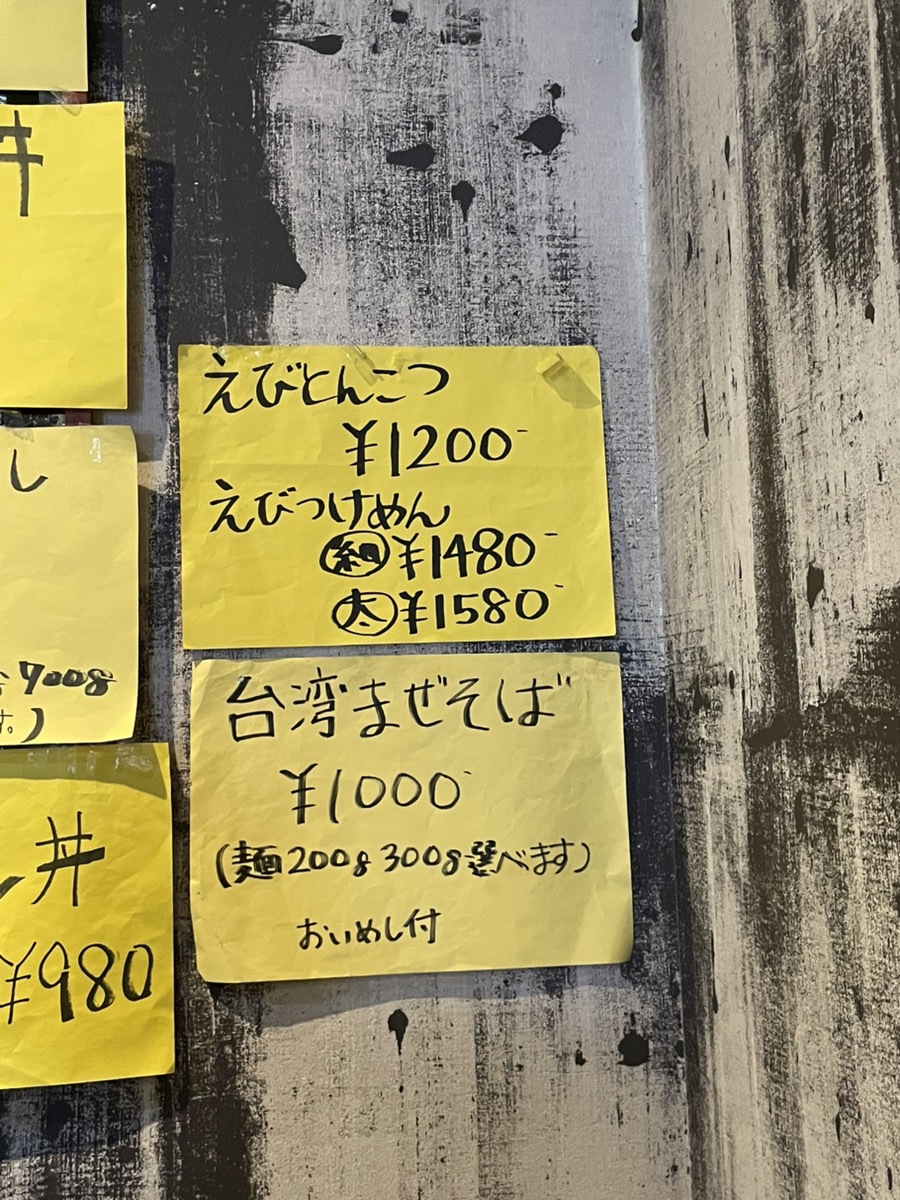 丼
し
900g
す。)
し丼
¥980
えびとんこつ
¥1200-
えびつけめん
細 ¥1480-
太 ¥1580-
台湾まぜそば
¥1000-
(麺200g 300g選べます)
おいめし付